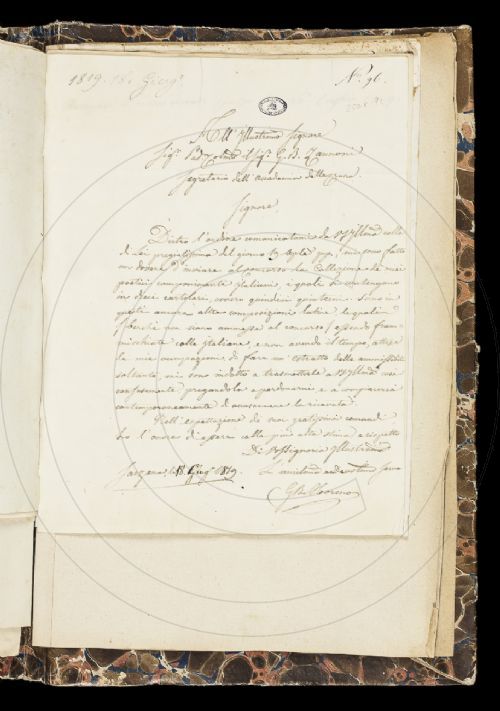 1819. 18. Giugº
Nº 96.
All' Illustrmo Signore
Sigr. G. B. Zannoni
Segretario dell' Accademia della Crusca
Signore
Dietro l'ordine comunicatomi da V. S. Illma colla
di Lei pregiatissima del giorno 19 Aple p. p., mi sono fatto
un dovere d'inviare al concorso la Collezione de' miei
poetici componimenti Italiani, i quali si contengono
in dieci cartolari, ovvero quindici quinterni. Sono in
questi ancora altre composizioni latine, le quali
(benchè non siano ammesse al concorso) essendo fram-
mischiate colle Italiane, e non avendo il tempo, attese
le mie occupazioni di fare un estratto delle
soltanto, mi sono indotto a trasmetterle a V. S. Illma così
confusamente pregandola a perdonarmi, e a compiacersi
contemporaneamente di accusarmene la ricevuta.
Nell' espettazione de' suoi graditissimi comandi
ho l'onore di essere colla più alta stima e rispetto
Di Vossignoria Illustrissma
Sarzana, li 18. Giugº 1819.
L' umilissmo servo